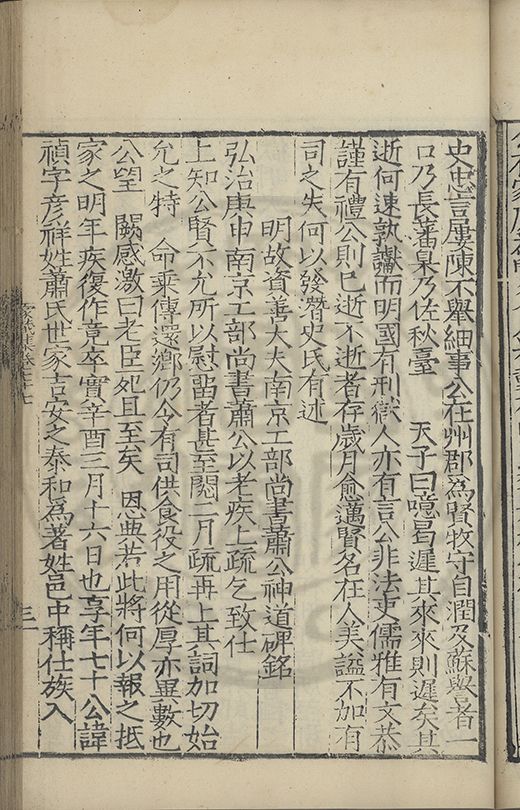 史忠言屢陳不舉細事公在州郡爲賢牧守自潤及蘇譽者一
口乃長藩臬乃佐秋臺　天子曰噫曷遲其來來則遲矣其
逝何速孰讞而明國有刑獄人亦有言公非法吏儒雅有文恭
謹有禮公則已逝不逝者存歲月愈邁賢名在人美謚不加有
司之失何以發潛史氏有述
明故資善大夫南京工部尚書蕭公神道碑銘
弘治庚申南京工部尚書蕭公以老疾上疏乞致仕
上知公賢不允所以慰留者甚至閱二月疏再上其詞加切始
允之特　命乘傳還鄉仍令有司供食役之用從厚亦異數也
公望　闕感激曰老臣死且至矣　恩典若此將何以報之抵
家之明年疾復作竟卒實辛酉三月十六日也享年七十公諱
禎字彥祥姓蕭氏世家吉安之泰和爲著姓邑中稱仕族入
三